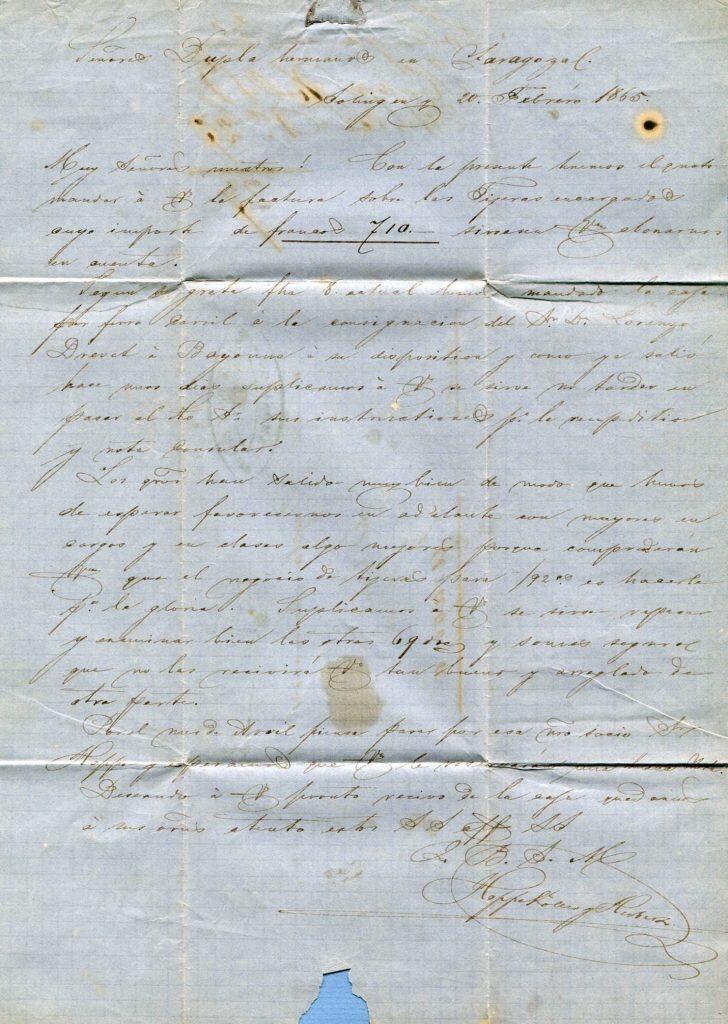 Señores Dupla hermanos en Zaragoza.
Solingen y 20. Febrero 1865.
Muy Señores nuestros! Con la presente tenemos el gusto
mandar à V la factura sobre las Tijeras encargadas
cuyo importe de francos 710.— sirvan Vm abonarnos
en cuenta.
Segun su grata fha 8. actual hemos mandado la caja
por ferro carril à la consignacion del Sr Dn Lorenzo
Drevet à Bayonna à su disposition y como ya salió
hace unos dias suplicamos à V se sirva no tardar en
pasar el Sr Dn sus instructiones pa la
y nota consular.
Los grõs han salido muy bien de modo que hemos
de esperar favorecernos en adelante con mayores en
cargos y en clases algo mejores porque comprederán
Vm que el negocio de tijeras para es hacerlo
pr la gloria. Suplicamos à V se sirva repasar
y examinar bien las otras 69 y somos seguros
que no las recivirá V tan bueno y arreglado de
otra parte.
Por el mes de Avril piensa pasar por esa nro socio Sr
Hoppe y esperamos que V le
Deseando à V pronto recivo de la caja quedamos
à sus orñs atento estos SS SS
Q. B. S. M
Hoppe